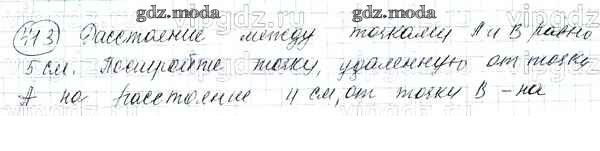 gdz.moda gdz.moda
413 Расстояние между точками А и В равно
5 см. Постройте точку, удаленную от точки
А на расстояние 4 см, от точки В – на